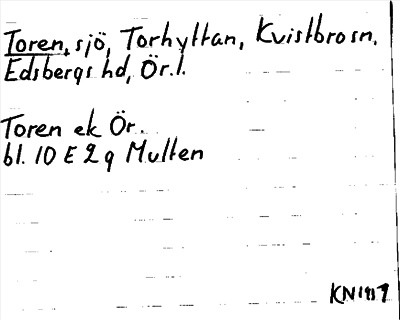 Toren, sjö, Torhyttan, Kvistbro sn,
Edsbergs hd, Ör.l.
Toren ek Ör.
bl. 10 E 2 g Multen
KN